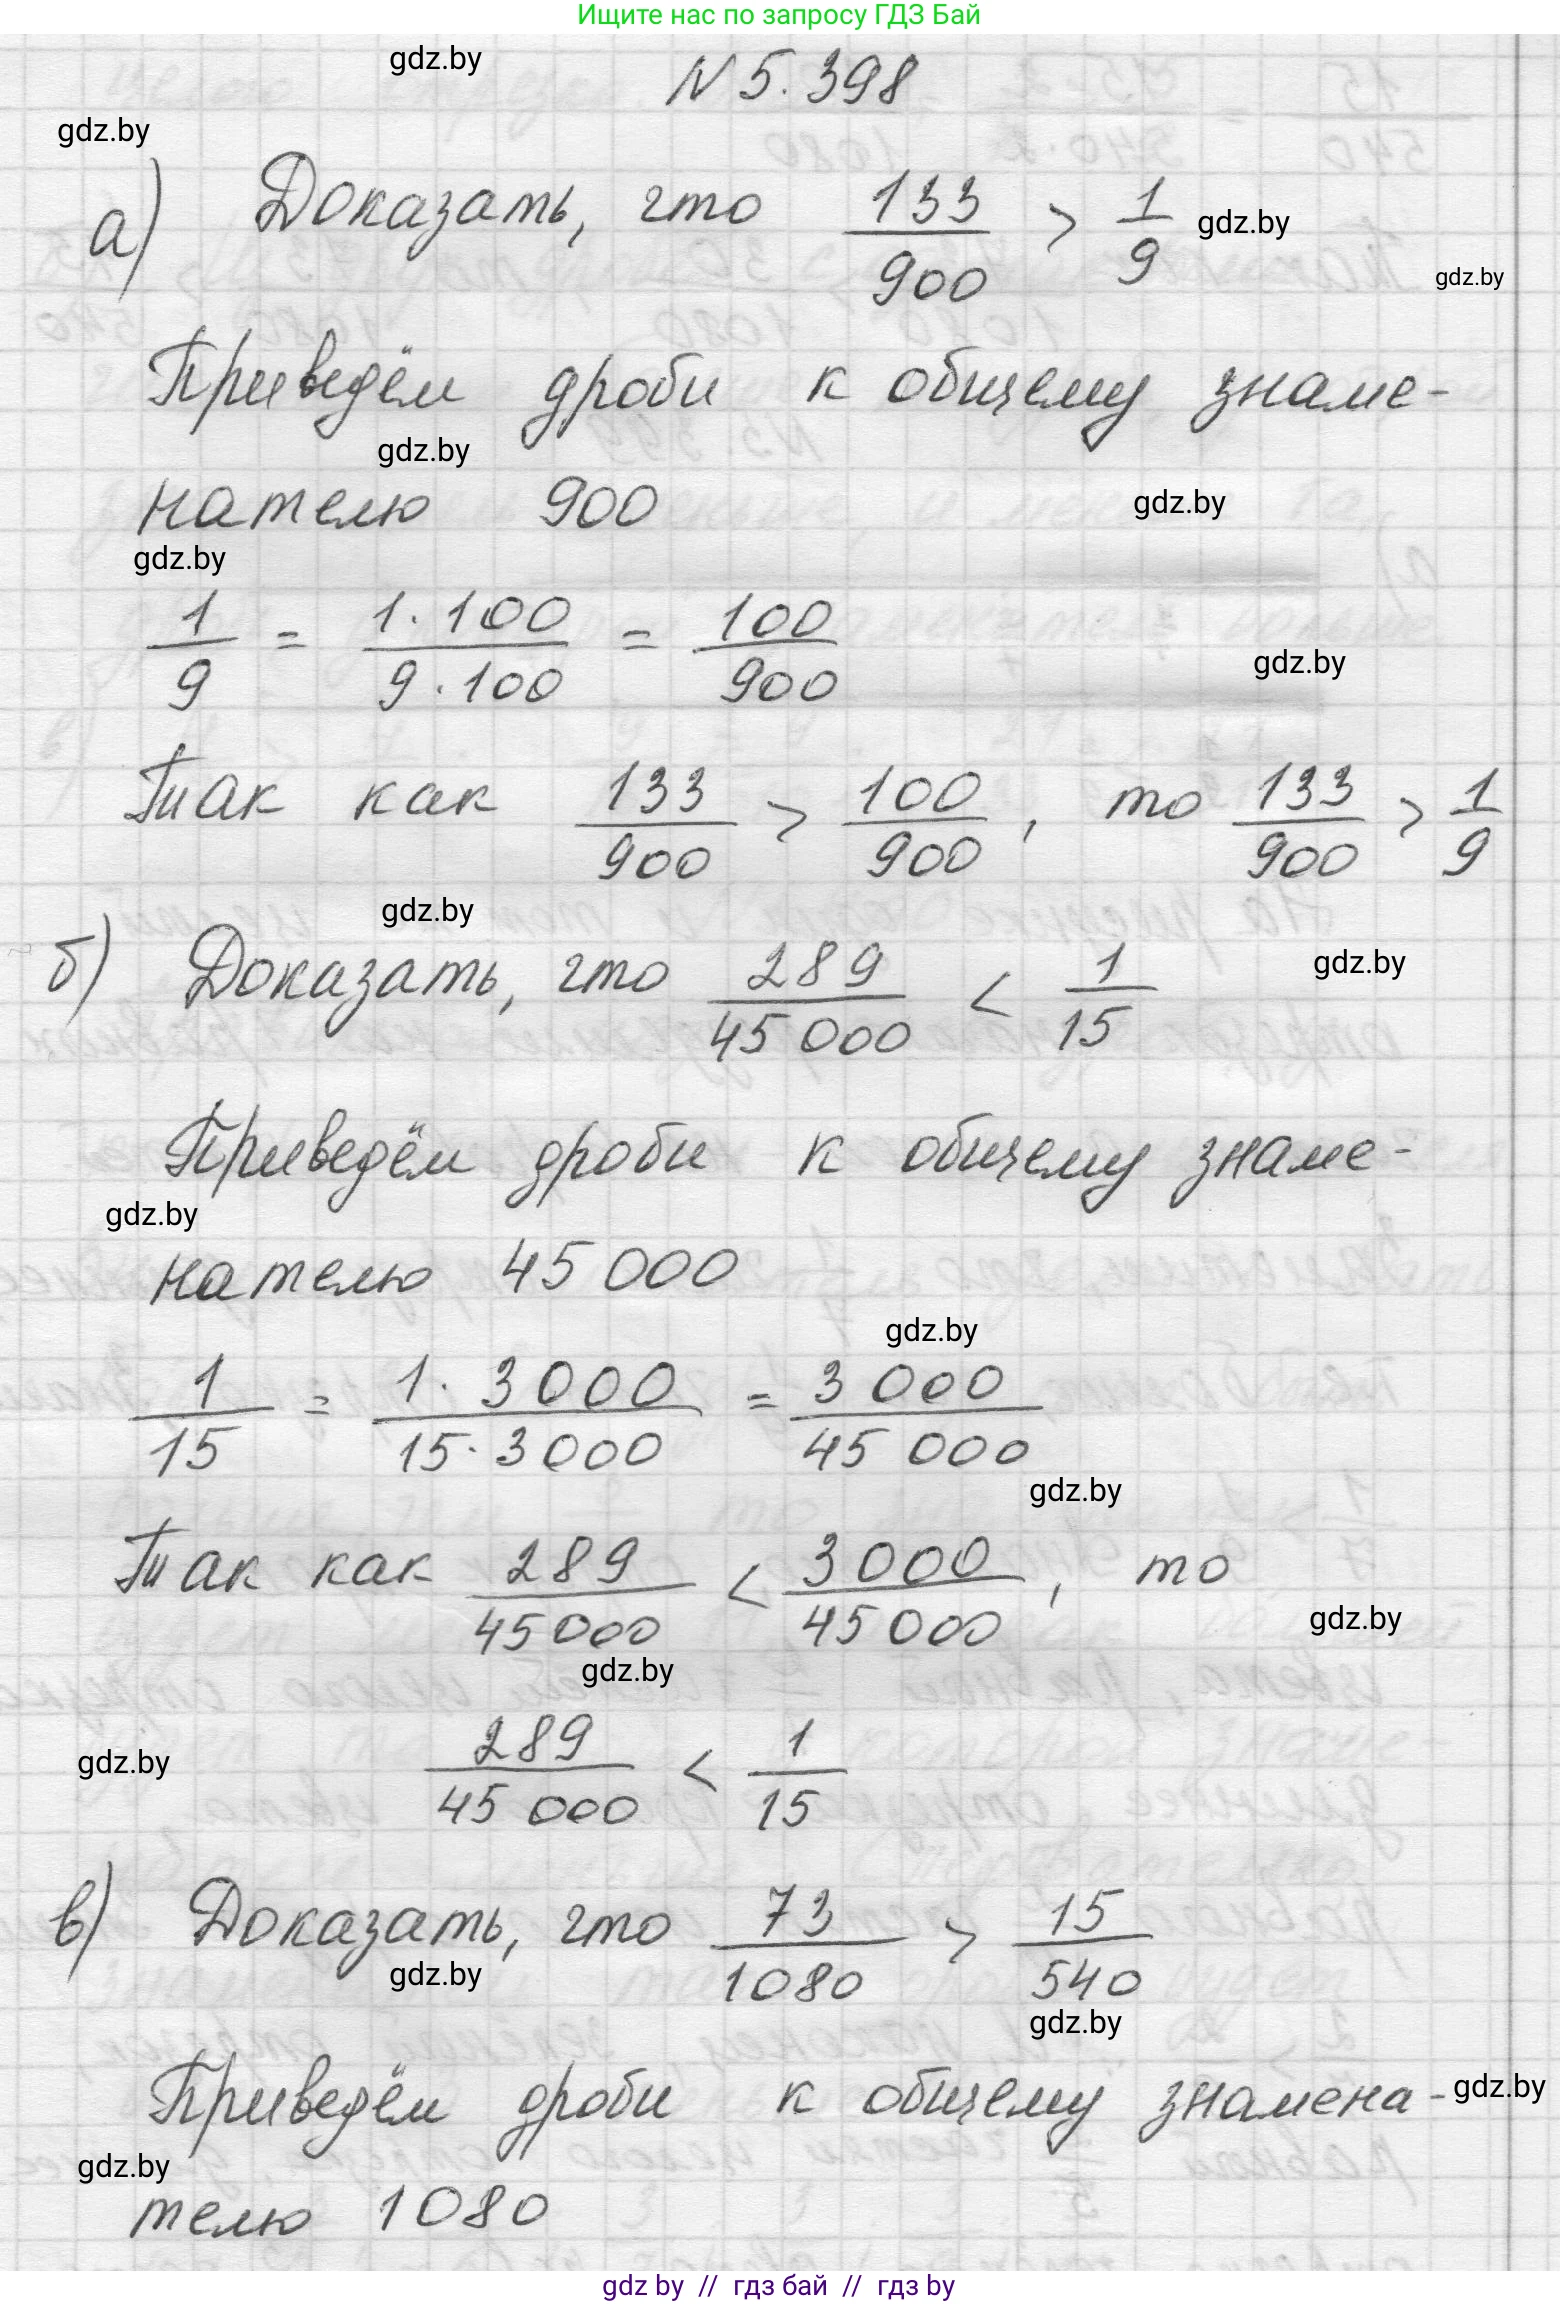 Ищите нас по запросу ГДЗ Бай
gdz.by
N 5.398
gdz.by
а) Доказать, что 133/900 > 1/9
gdz.by
gdz.by
Приведём дроби к общему знаме-
gdz.by
нателю 900
gdz.by
gdz.by
1/9 = 1·100/9·100 = 100/900
gdz.by
Так как 133/900 > 100/900, то 133/900 > 1/9
gdz.by
б) Доказать, что 289/45 000 < 1/15
gdz.by
Приведём дроби к общему знаме-
gdz.by
нателю 45 000
gdz.by
1/15 = 1·3 000/15·3 000 = 3 000/45 000
gdz.by
Так как 289/45 000 < 3 000/45 000, то
gdz.by
gdz.by
289/45 000 < 1/15
gdz.by
в) Доказать, что 73/1080 > 15/540
gdz.by
gdz.by
Приведём дроби к общему знамена-
gdz.by
gdz.by
телю 1080
gdz by // гдз бай // гдз by